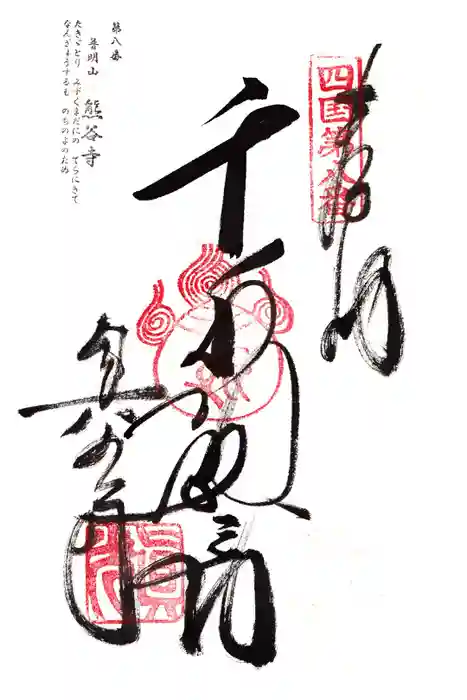 四国第八番
奉納
千手
熊谷寺
第八番
普明山 熊谷寺
たきゞとり みずくまだにの てらにきて
なんぎょうするも のちのよのため